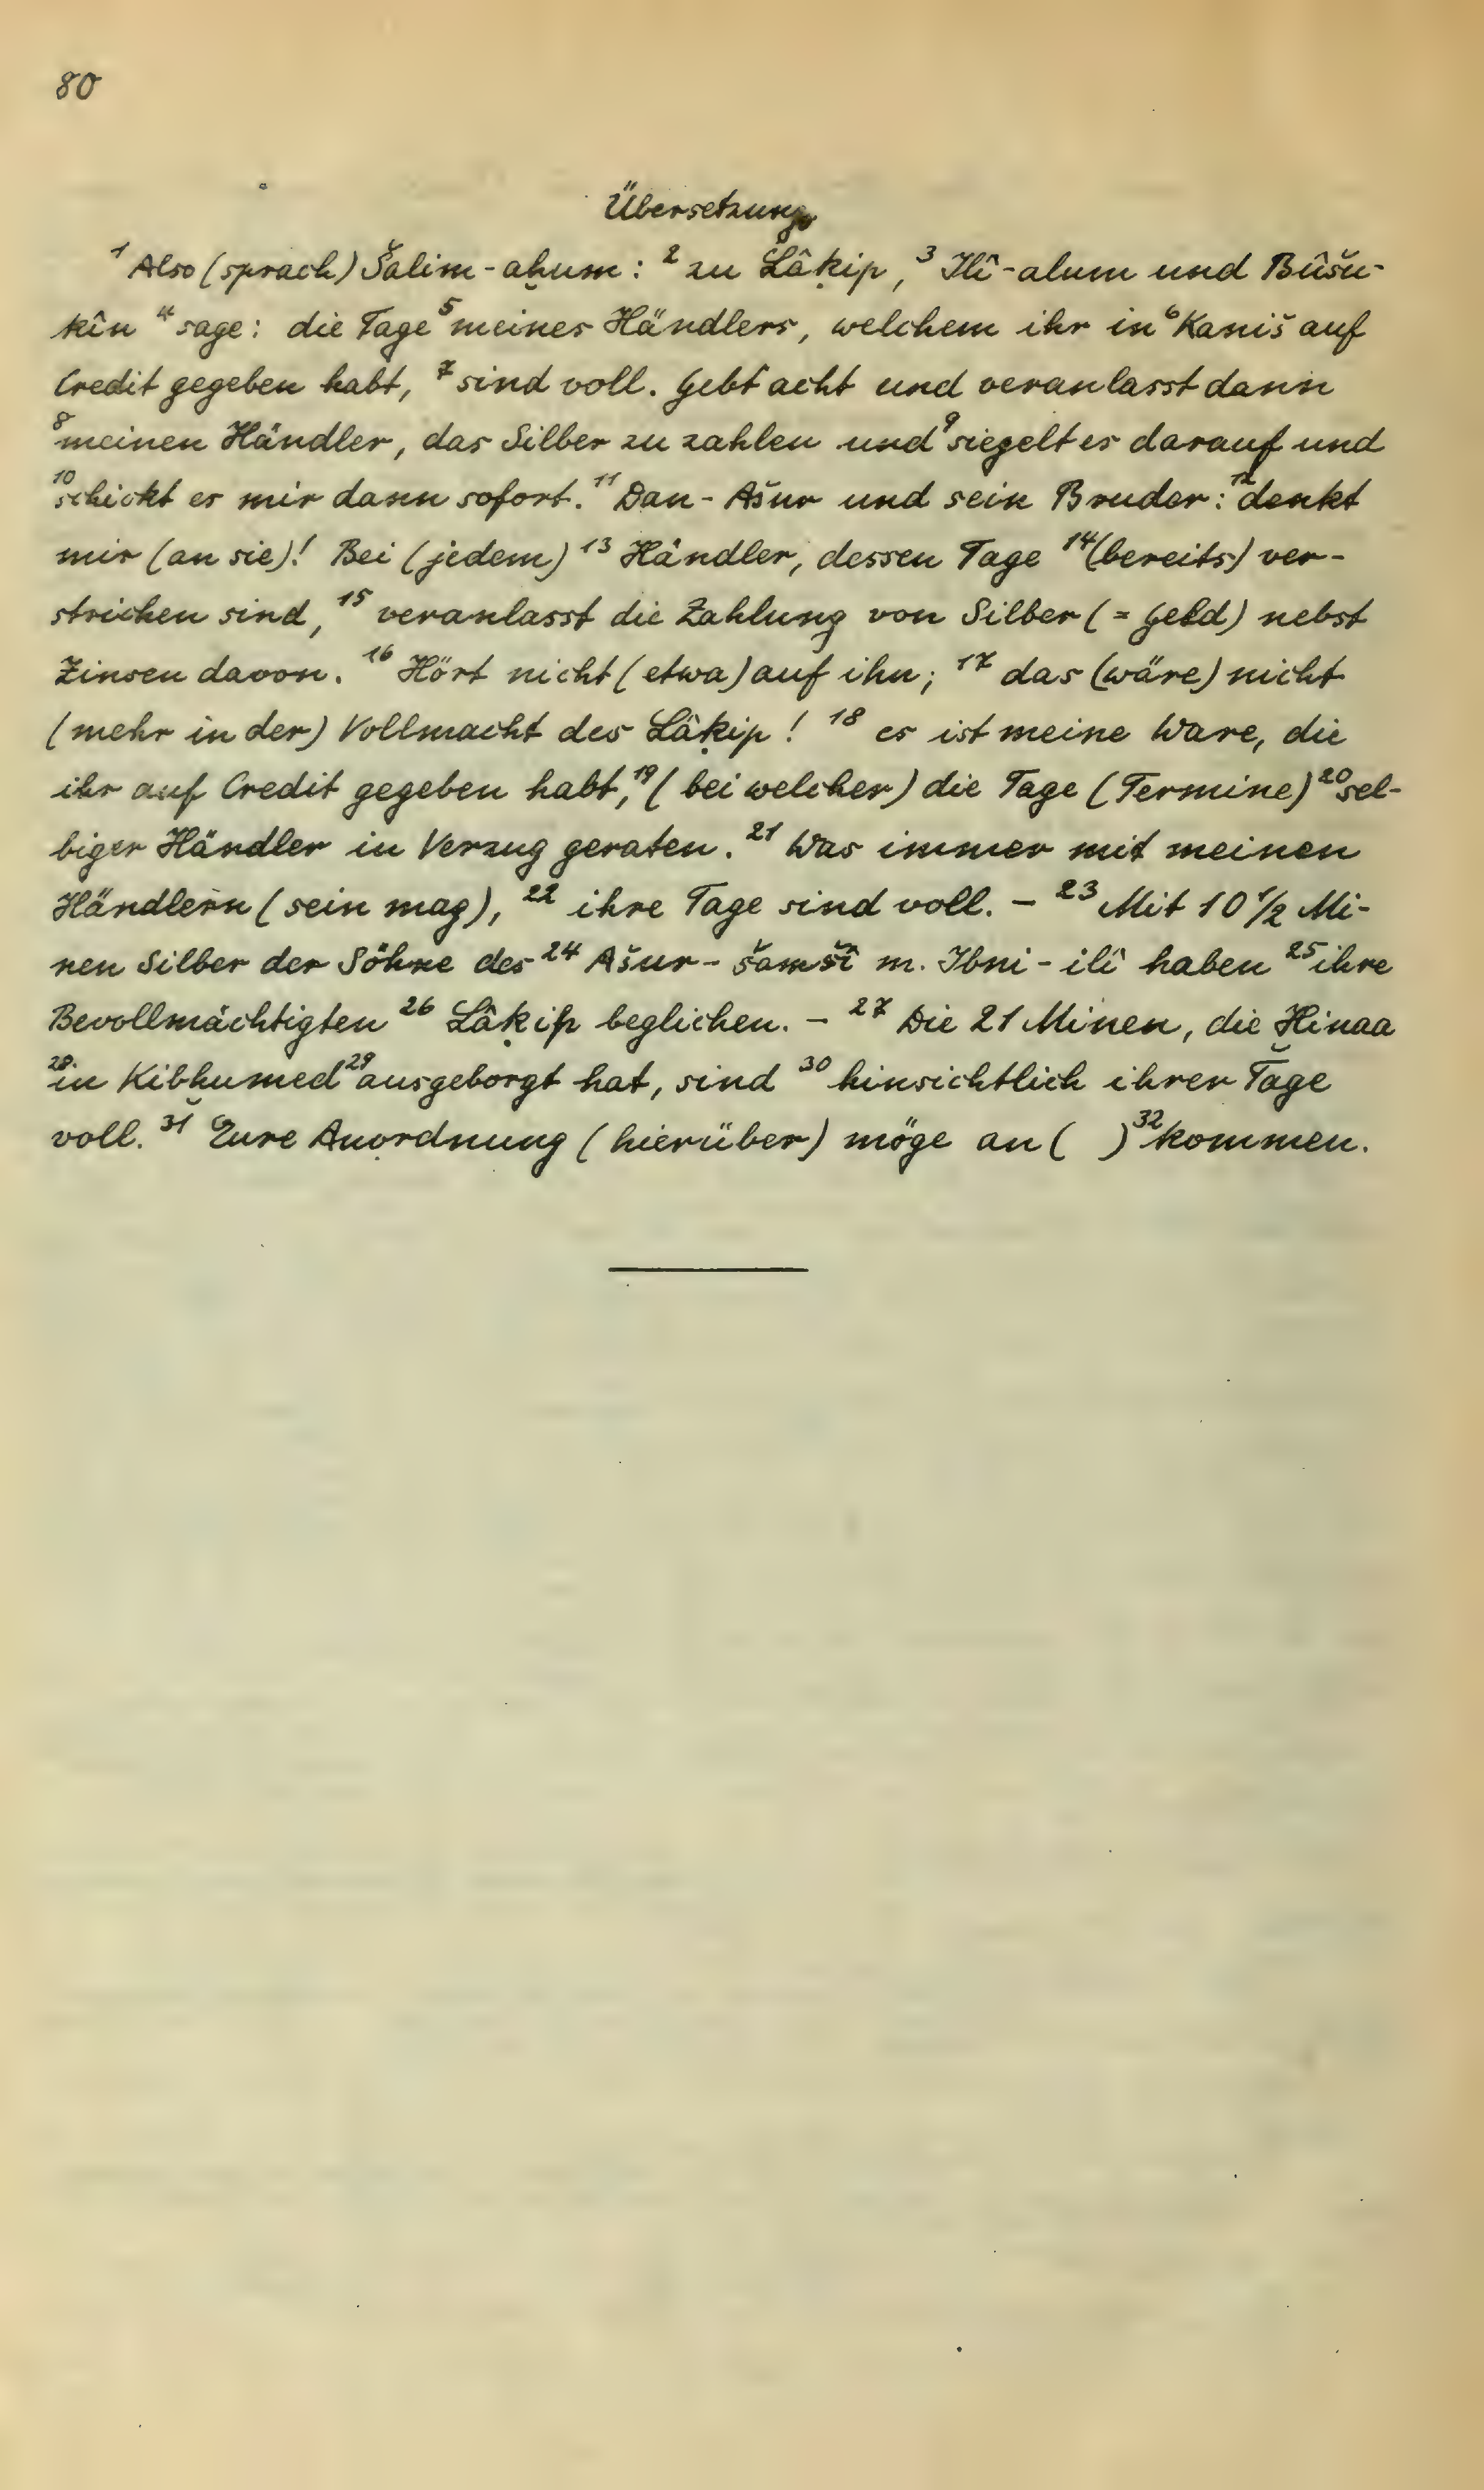 80
Übersetzung
¹ Also (sprach) Šalim-aḫum: ² zu Lâḳip, ³ Ilî-alum und Bûšu-
kîn ⁴ sage: die Tage ⁵ meines Händlers, welchem ihr in ⁶ Kaniš auf
Credit gegeben habt, ⁷ sind voll. Gebt acht und veranlasst dann
⁸ meinen Händler, das Silber zu zahlen und ⁹ siegelt es darauf und
¹⁰ schickt es mir dann sofort. ¹¹ Dan-Ašur und sein Bruder: ¹² denkt
mir (an sie)! Bei (jedem) ¹³ Händler, dessen Tage ¹⁴ (bereits) ver-
strichen sind, ¹⁵ veranlasst die Zahlung von Silber (= Geld) nebst
Zinsen davon. ¹⁶ Hört nicht (etwa) auf ihn; ¹⁷ das (wäre) nicht
(mehr in der) Vollmacht des Lâḳip! ¹⁸ es ist meine Ware, die
ihr auf Credit gegeben habt, ¹⁹ (bei welcher) die Tage (Termine) ²⁰ sel-
biger Händler in Verzug geraten. ²¹ Was immer mit meinen
Händlern (sein mag), ²² ihre Tage sind voll. – ²³ Mit 10 1/2 Mi-
nen Silber der Söhne des ²⁴ Ašur-šamšî m. Ibni-ilî haben ²⁵ ihre
Bevollmächtigten ²⁶ Lâḳip beglichen. – ²⁷ Die 21 Minen, die Ḫinaa
²⁸ in Kibḫumed ²⁹ ausgeborgt hat, sind ³⁰ hinsichtlich ihrer Tage
voll. ³¹ Eure Anordnung (hierüber) möge an ( ) ³² kommen.